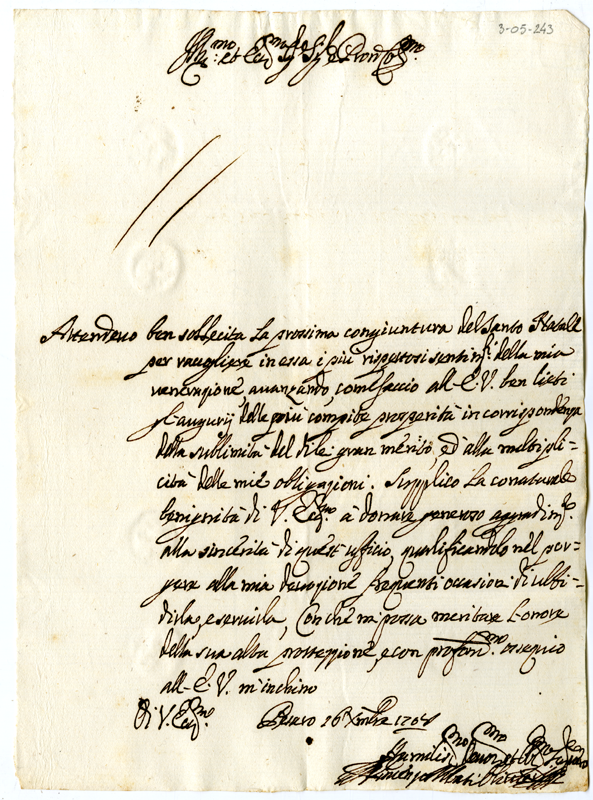 3-05-243
Ill.mo et Ecc.mo Sig.r Sig.r e Pron Col.mo
Attendevo ben sollecita la prossima congiuntura del Santo Natale
per racogliere in essa i più rispettosi sentim.ti della mia
venerazione, avanzando, come faccio all'E.V. ben lieti
gl'augurij delle più compite prosperità in corrispondenza
della sublimità del di lei gran merito, ed alla moltipli-
cità delle mie obligazioni. Supplico la conaturale
benignità di V. Ecc.mo a donare generoso aggradim.to
alla sincerità di quest'ufficio, qualificando nel por-
gere alla mia devozione frequenti occasioni di ubbi-
dirla, e servirla, Con che mi possa meritare l'onore
della sua alta prottezzione, e con profond.mo ossequio
all'E.V. m'inchino
Di V. Ecc.mo 16 Xmbre
Humiliss.mo Devot.mo et